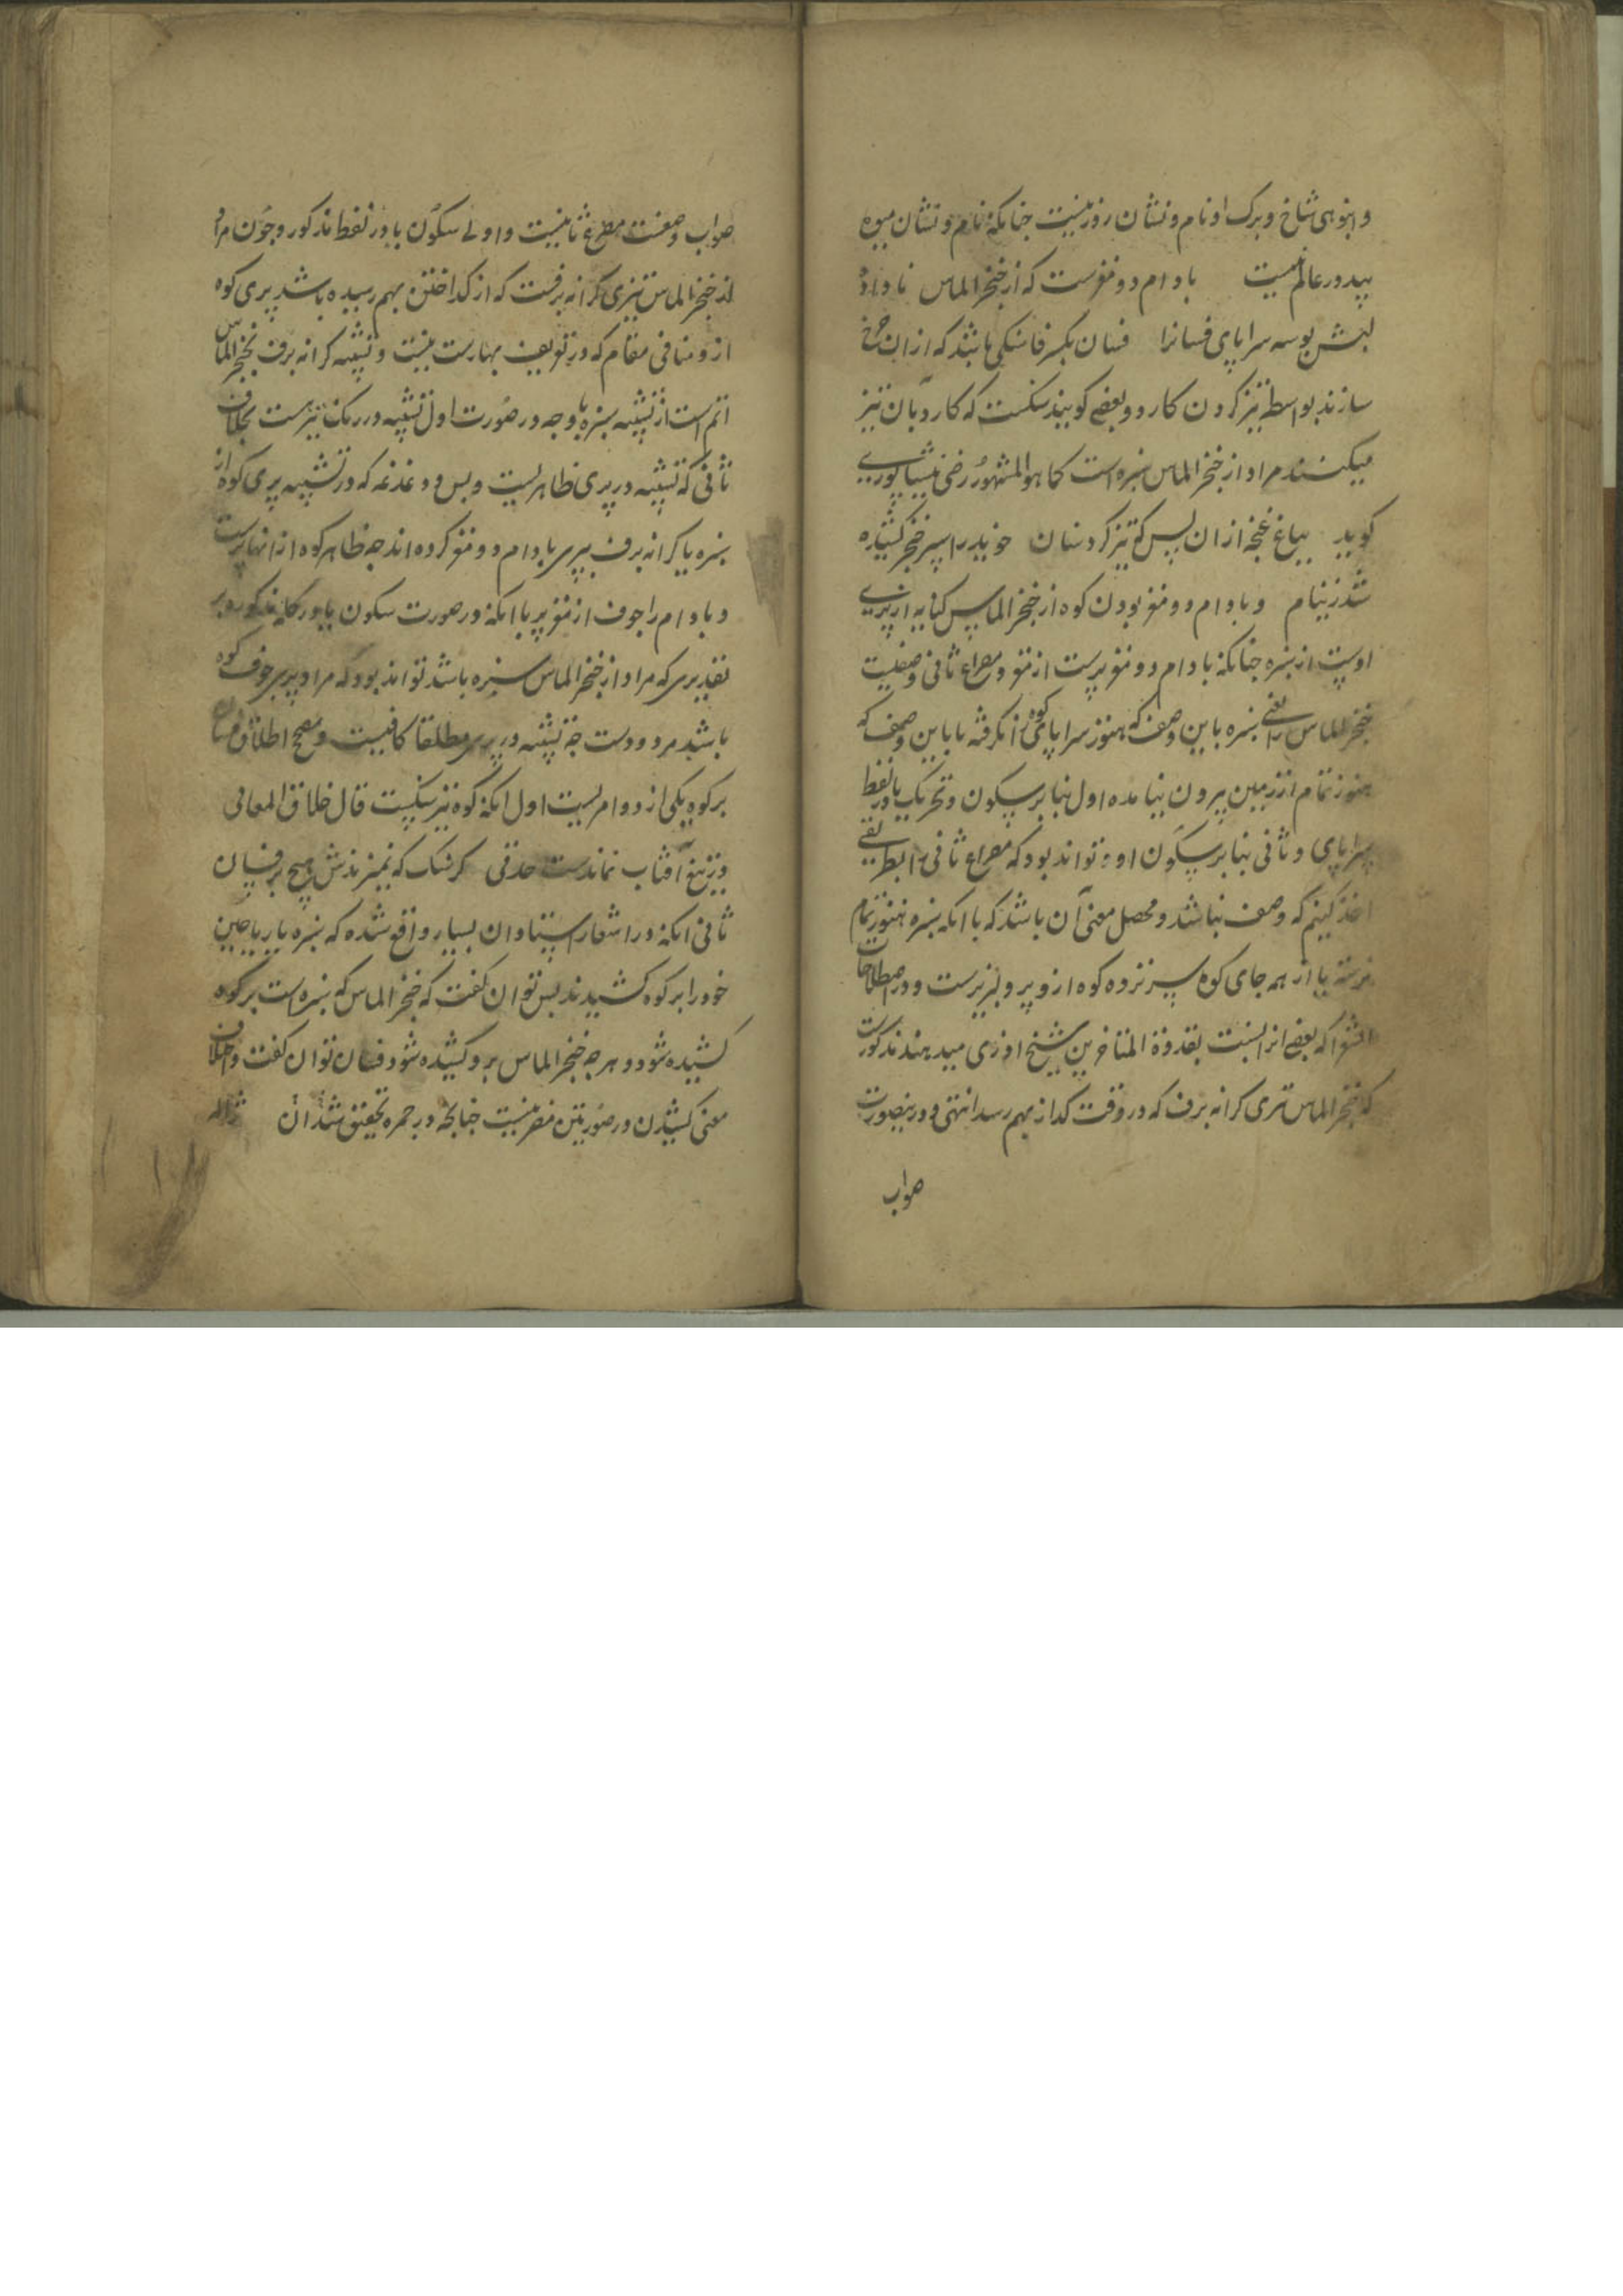 و انبوهی شاخ و برک او نام و نشان روز نیست چنانکه نام و نشان میوه
بید در عالم نیست بادام دو مغزست که از خنجر الماس ناداده
لبش بوسه سراپای فسانرا فسان بکسر فا سنکی باشد که ازان چرخ
سازند بواسطه تیز کردن کارد و بعضی کویند سنکست که کارد بآن تیز
میکنند مراد از خنجر الماس سبزه است کما هو المشهور رضی نیشاپوری
کوید بباغ غنچه ازان پس که تیز کرد سنان خوید را سپر خنجر کشیده
شد ز نیام و بادام دو مغز بودن کوه از خنجر الماس کنایه از پری
اوست از سبزه چنانکه بادام دو مغز پرست از مغز و مصراع ثانی وصفیت
خنجر الماس را یعنی سبزه باین وصف که هنوز سراپای کوه را نکرفته یا باین وصف که
هنوز تمام از زمین بیرون نیامده اول بنا بر سکون و تحریک یا در لفظ
سراپای و ثانی بنا بر سکون او و تواند بود که مصراع ثانی را بطریقی
اخذ کنیم که وصف نباشد و محصل معنی آن باشد که با انکه سبزه هنوز تمام
نرسته یا از همه جای کوه سر نزده کوه ازو پر و لبریزست و در اصطلاحات
الشعرا که بعضی انرا نسبت بقدوة المتاخرین شیخ اوزی میدهند مذکورست
که خنجر الماس تری کرانه برف که در وقت کداز بهم رسد انتهی و درینصورت
صواب
صواب وصفیت مصراع ثانیست و اولی سکون یا در لفظ مذکور و چون مراد
از خنجر الماس تیزی کرانه برفست که از کداختن بهم رسیده باشد پری کوه
ازو منافی مقام که در تعریف بهارست نیست و تشبیه کرانه برف بخنجر الماس
اتم است از تشبیه سبزه باو چه در صورت اول تشبیه در رنک نیز هست بخلاف
ثانی که تشبیه در پری ظاهریست و بس و دغدغه که در تشبیه پری کوه از
سبزه یا کرانه برف بپری بادام دو مغز کرده اند چه ظاهر کوه ازانها پرست
و بادام را جوف از مغز پر با انکه در صورت سکون یا در کلمه مذکور و بر
تقدیری که مراد از خنجر الماس سبزه باشد تواند بود که مراد پری جوف کوه
باشد مردودست چه تشبیه در پری مطلقا کافیست و مصحح اطلاق فسان
بر کوه یکی از دو امریست اول انکه کوه نیز سنکیست قال خلاق المعانی
وز تیغ آفتاب نماندست حدتی کر سنک که نمیزندش صبح بر فسان
ثانی انکه در اشعار استادان بسیار واقع شده که سبزه یا ریاحین
خود را بر کوه کشیدند پس توان کفت که خنجر الماس که سبزه است بر کوه
کشیده شود و هر چه خنجر الماس برو کشیده شود فسان توان کفت و اختلاف
معنی کشیدن در صورتین مضر نیست چنانچه در جمره تحقیق شد ان ژاله